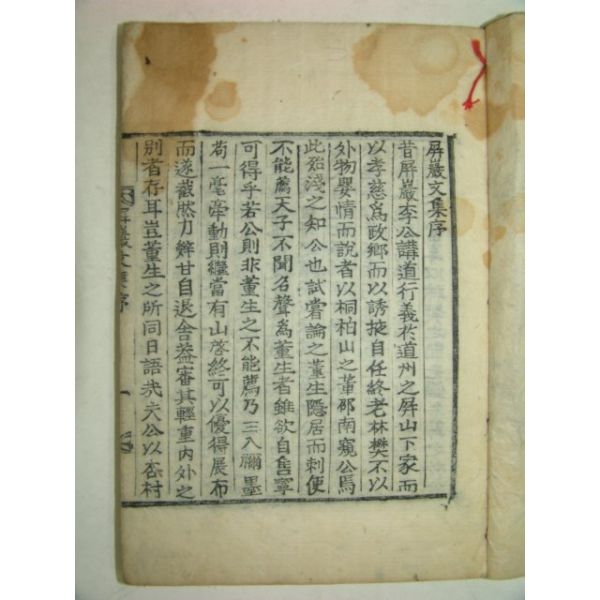 屛巖文集序
昔屛巖李公講道行義於道州之屛山下家而
以孝慈爲政鄕而以誘掖自任終老林樊不以
外物嬰情而說者以桐柏山之董邵南窺公焉
此殆淺之知公也試嘗論之董生隱居而刺使
不能薦天子不聞名聲爲董生者雖欲自售寧
可得乎若公則非董生之不能薦乃三入禰墨
苟一毫牽動則繼當有山啓終可以優得展布
而遂截然力辭甘自退舍益審其輕重內外之
別者存耳豈董生之所同日語哉夫公以杏村
屛巖文集序
一